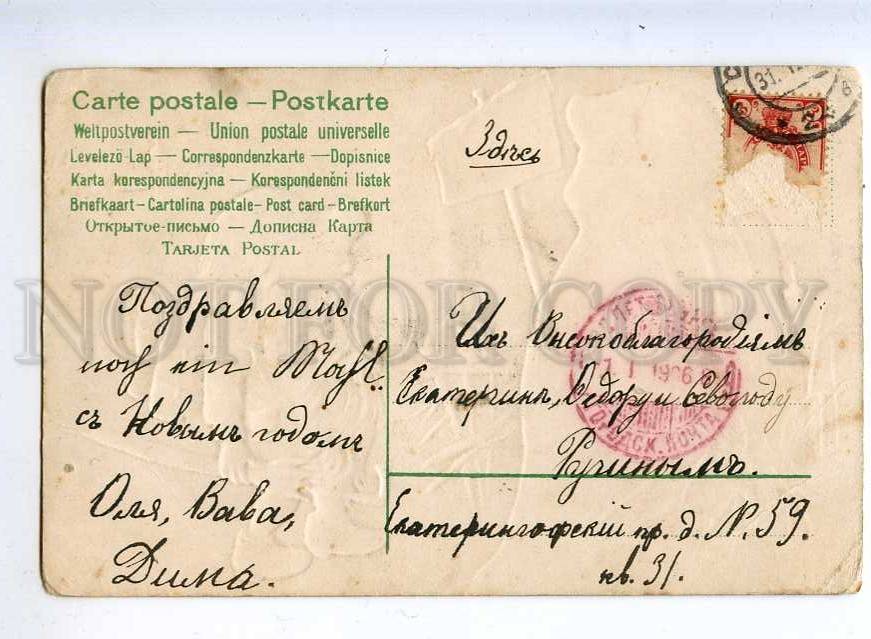 Carte postale — Postkarte
Weltpostverein — Union postale universelle
Levelező-Lap — Correspondenzkarte — Dopisnice
Karta korespondencyjna — Korespondenční listek
Briefkaart - Cartolina postale - Post card - Brefkort
Открытое-письмо — Дописна Карта
TARJETA POSTAL
Здѣсь
31.
Поздравляемъ
noch ein Mahl
съ Новымъ годомъ
Оля, Вава,
Дима.
Ихъ Высокоблагородіямъ
Екатеринѣ, Ѳедору и Севолоду
Ругинымъ.
Екатерингофскій пр. д. N. 59.
кв. 31.
1906
ГОРОДСК. ПОЧТА
NOT FOR COPY